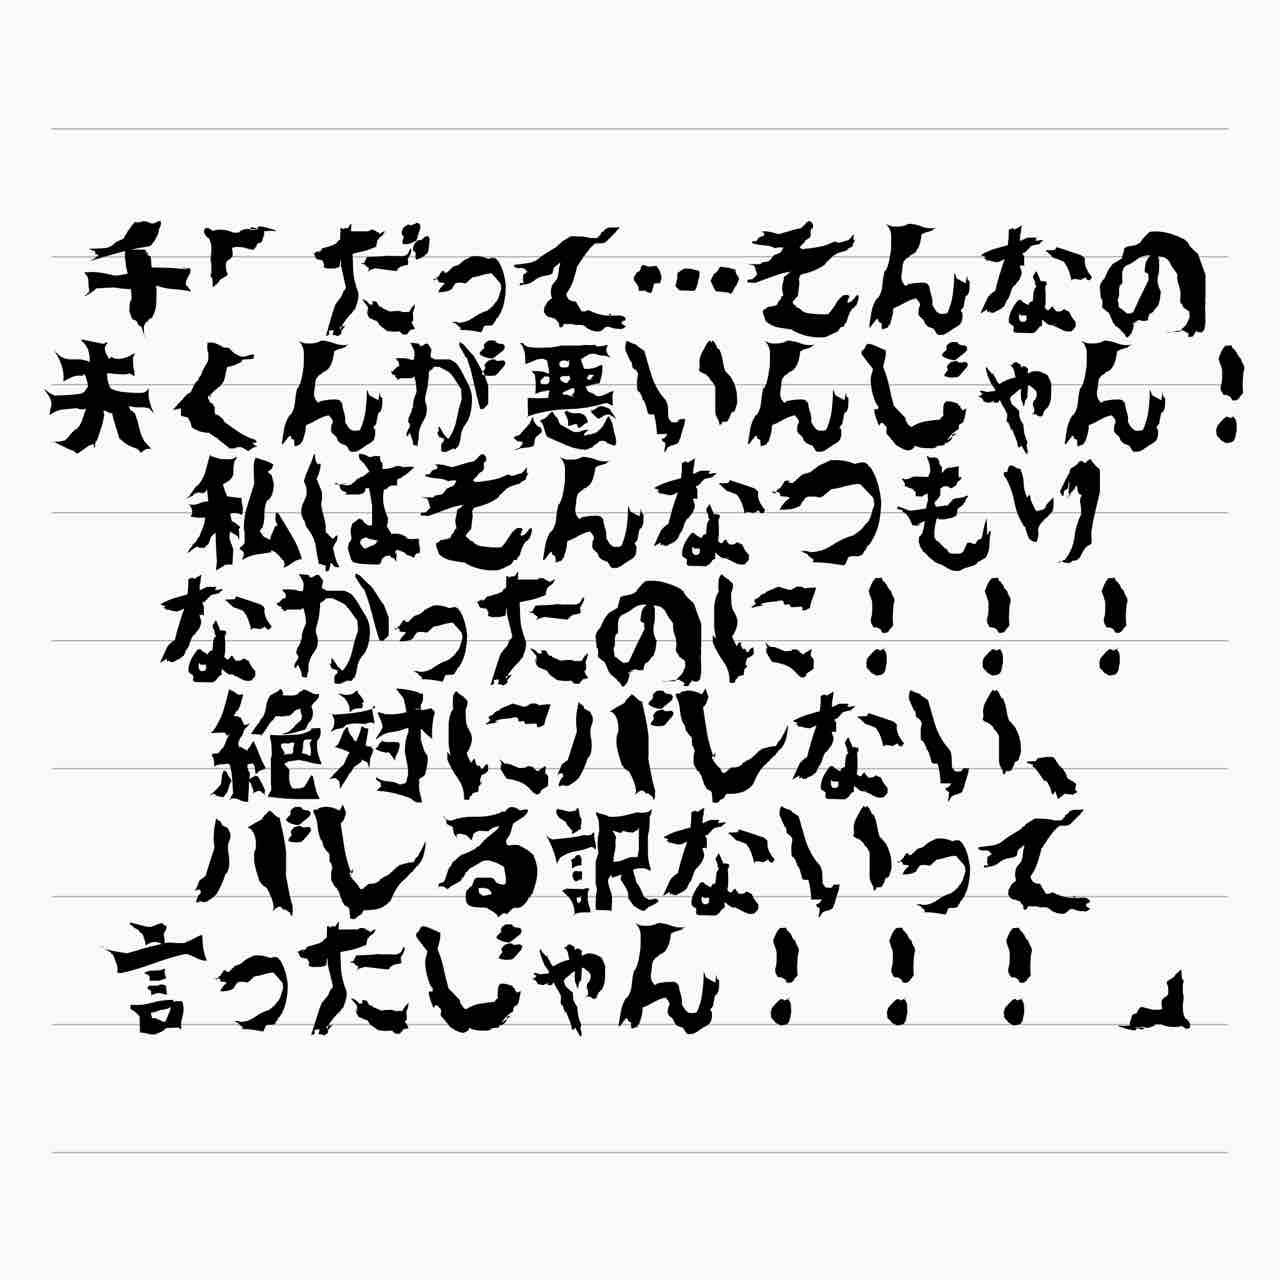 千「だって…そんなの
夫くんが悪いんじゃん！
私はそんなつもり
なかったのに！！！
絶対にバレない、
バレる訳ないって
言ったじゃん！！！」